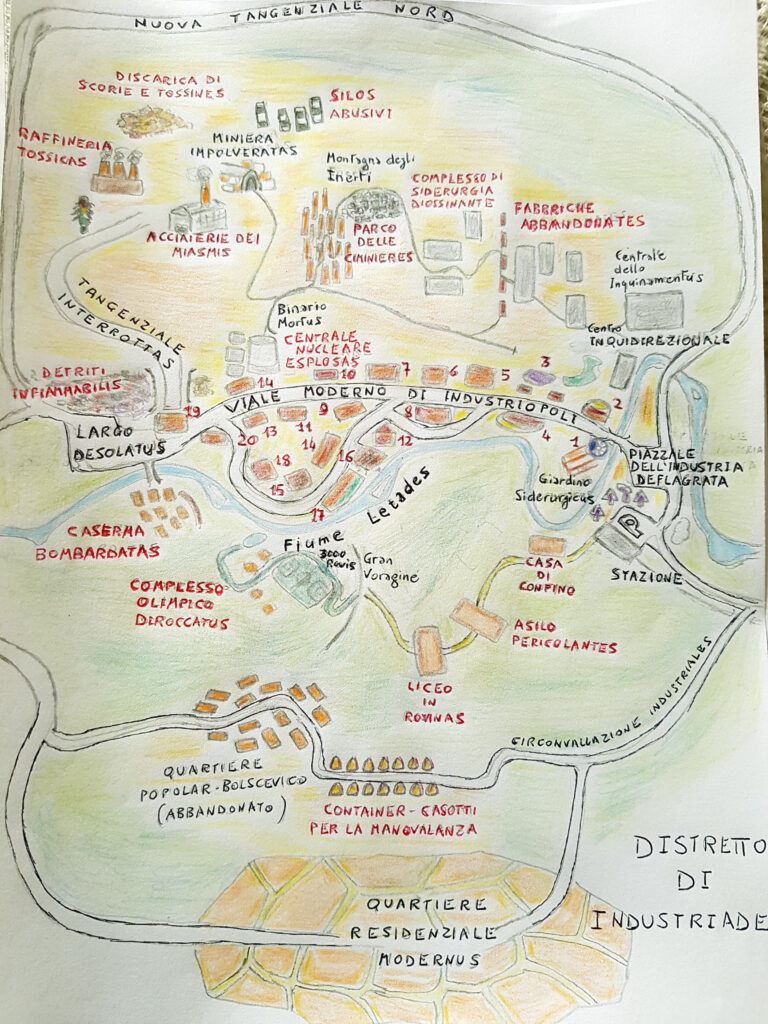 NUOVA TANGENZIALE NORD
DISCARICA DI
SCORIE E TOSSINES
SILOS
ABUSIVI
RAFFINERIA
TOSSICAS
MINIERA
IMPOLVERATAS
Montagna degli
Inerti
COMPLESSO DI
SIDERURGIA
DIOSSINANTE
FABBRICHE
ABBANDONATES
ACCIAIERIE DEI
MIASMIS
PARCO
DELLE
CIMINIERES
Centrale
dello
Inquinamentus
TANGENZIALE
INTERROTTAS
Binario
Mortus
CENTRALE
NUCLEARE
ESPLOSAS
Centro
INQUIDIREZIONALE
DETRITI
INFIAMMABILIS
14
10
7
6
5
3
2
19
VIALE MODERNO DI INDUSTRIOPOLI
LARGO
DESOLATUS
20
13
11
9
8
4
1
14
12
18
16
15
17
PIAZZALE
DELL'INDUSTRIA
DEFLAGRATA
Giardino
Siderurgicus
P
Fiume Letades
CASERMA
BOMBARDATAS
3000
Rovis
Gran
Voragine
CASA
DI
CONFINO
STAZIONE
COMPLESSO
OLIMPICO
DIROCCATUS
ASILO
PERICOLANTES
LICEO
IN
ROVINAS
CIRCONVALLAZIONE INDUSTRIALES
QUARTIERE
POPOLAR-BOLSCEVICO
(ABBANDONATO)
CONTAINER-CASOTTI
PER LA MANOVALANZA
DISTRETTO
DI
INDUSTRIADE
QUARTIERE
RESIDENZIALE
MODERNUS